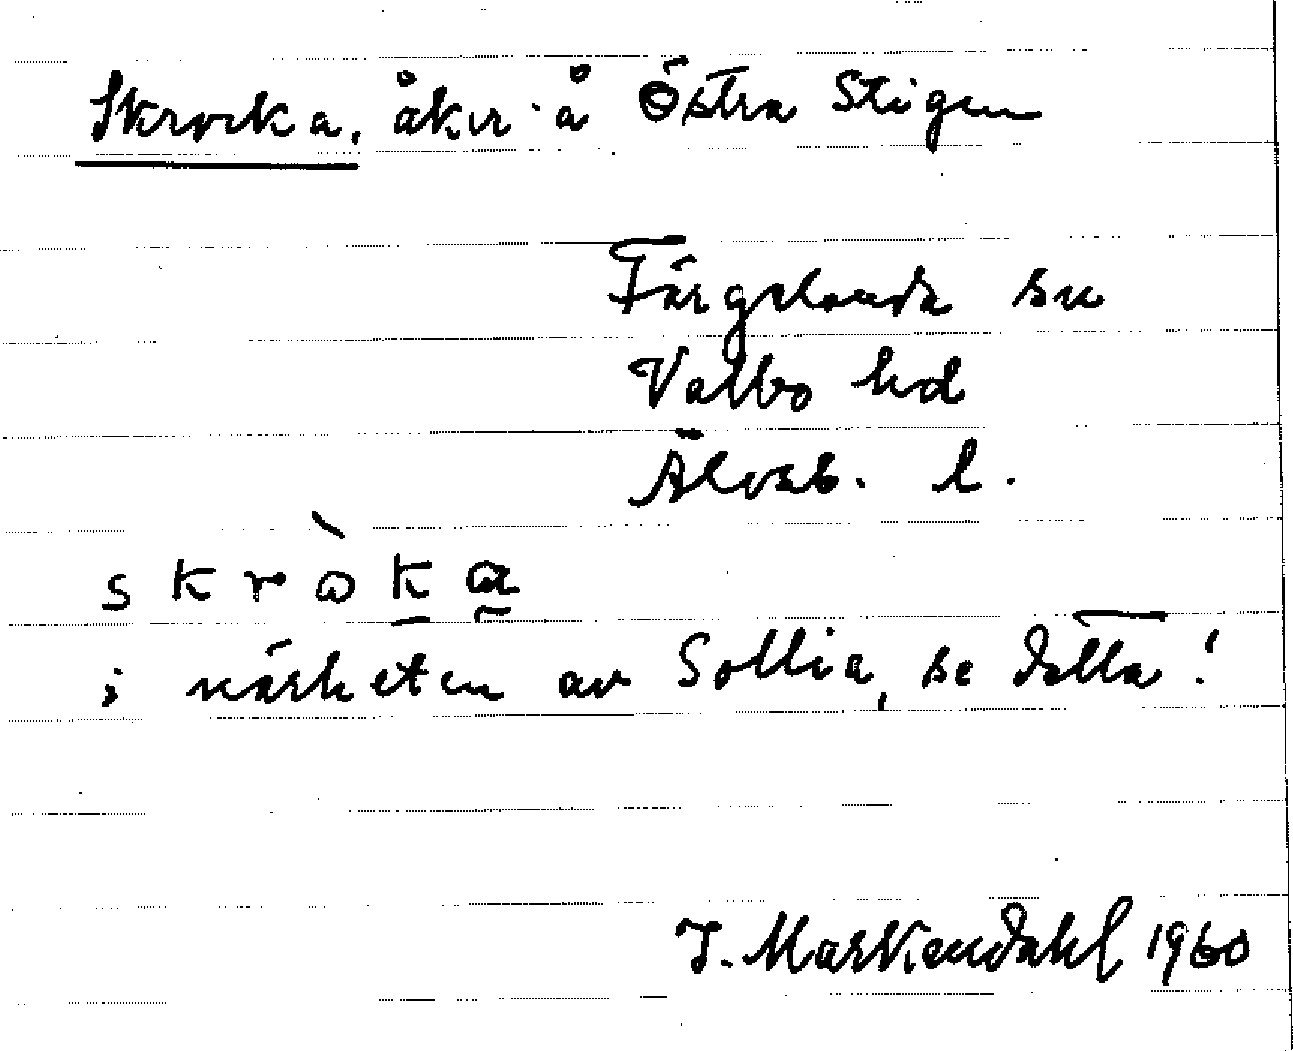 Skrocka, åker å Östra Stigen
Färgelanda sn
Valbo hd
Älvsb. l.
s k r ὰ k a
i närheten av Sollia, se detta!
I. Markendahl 1960